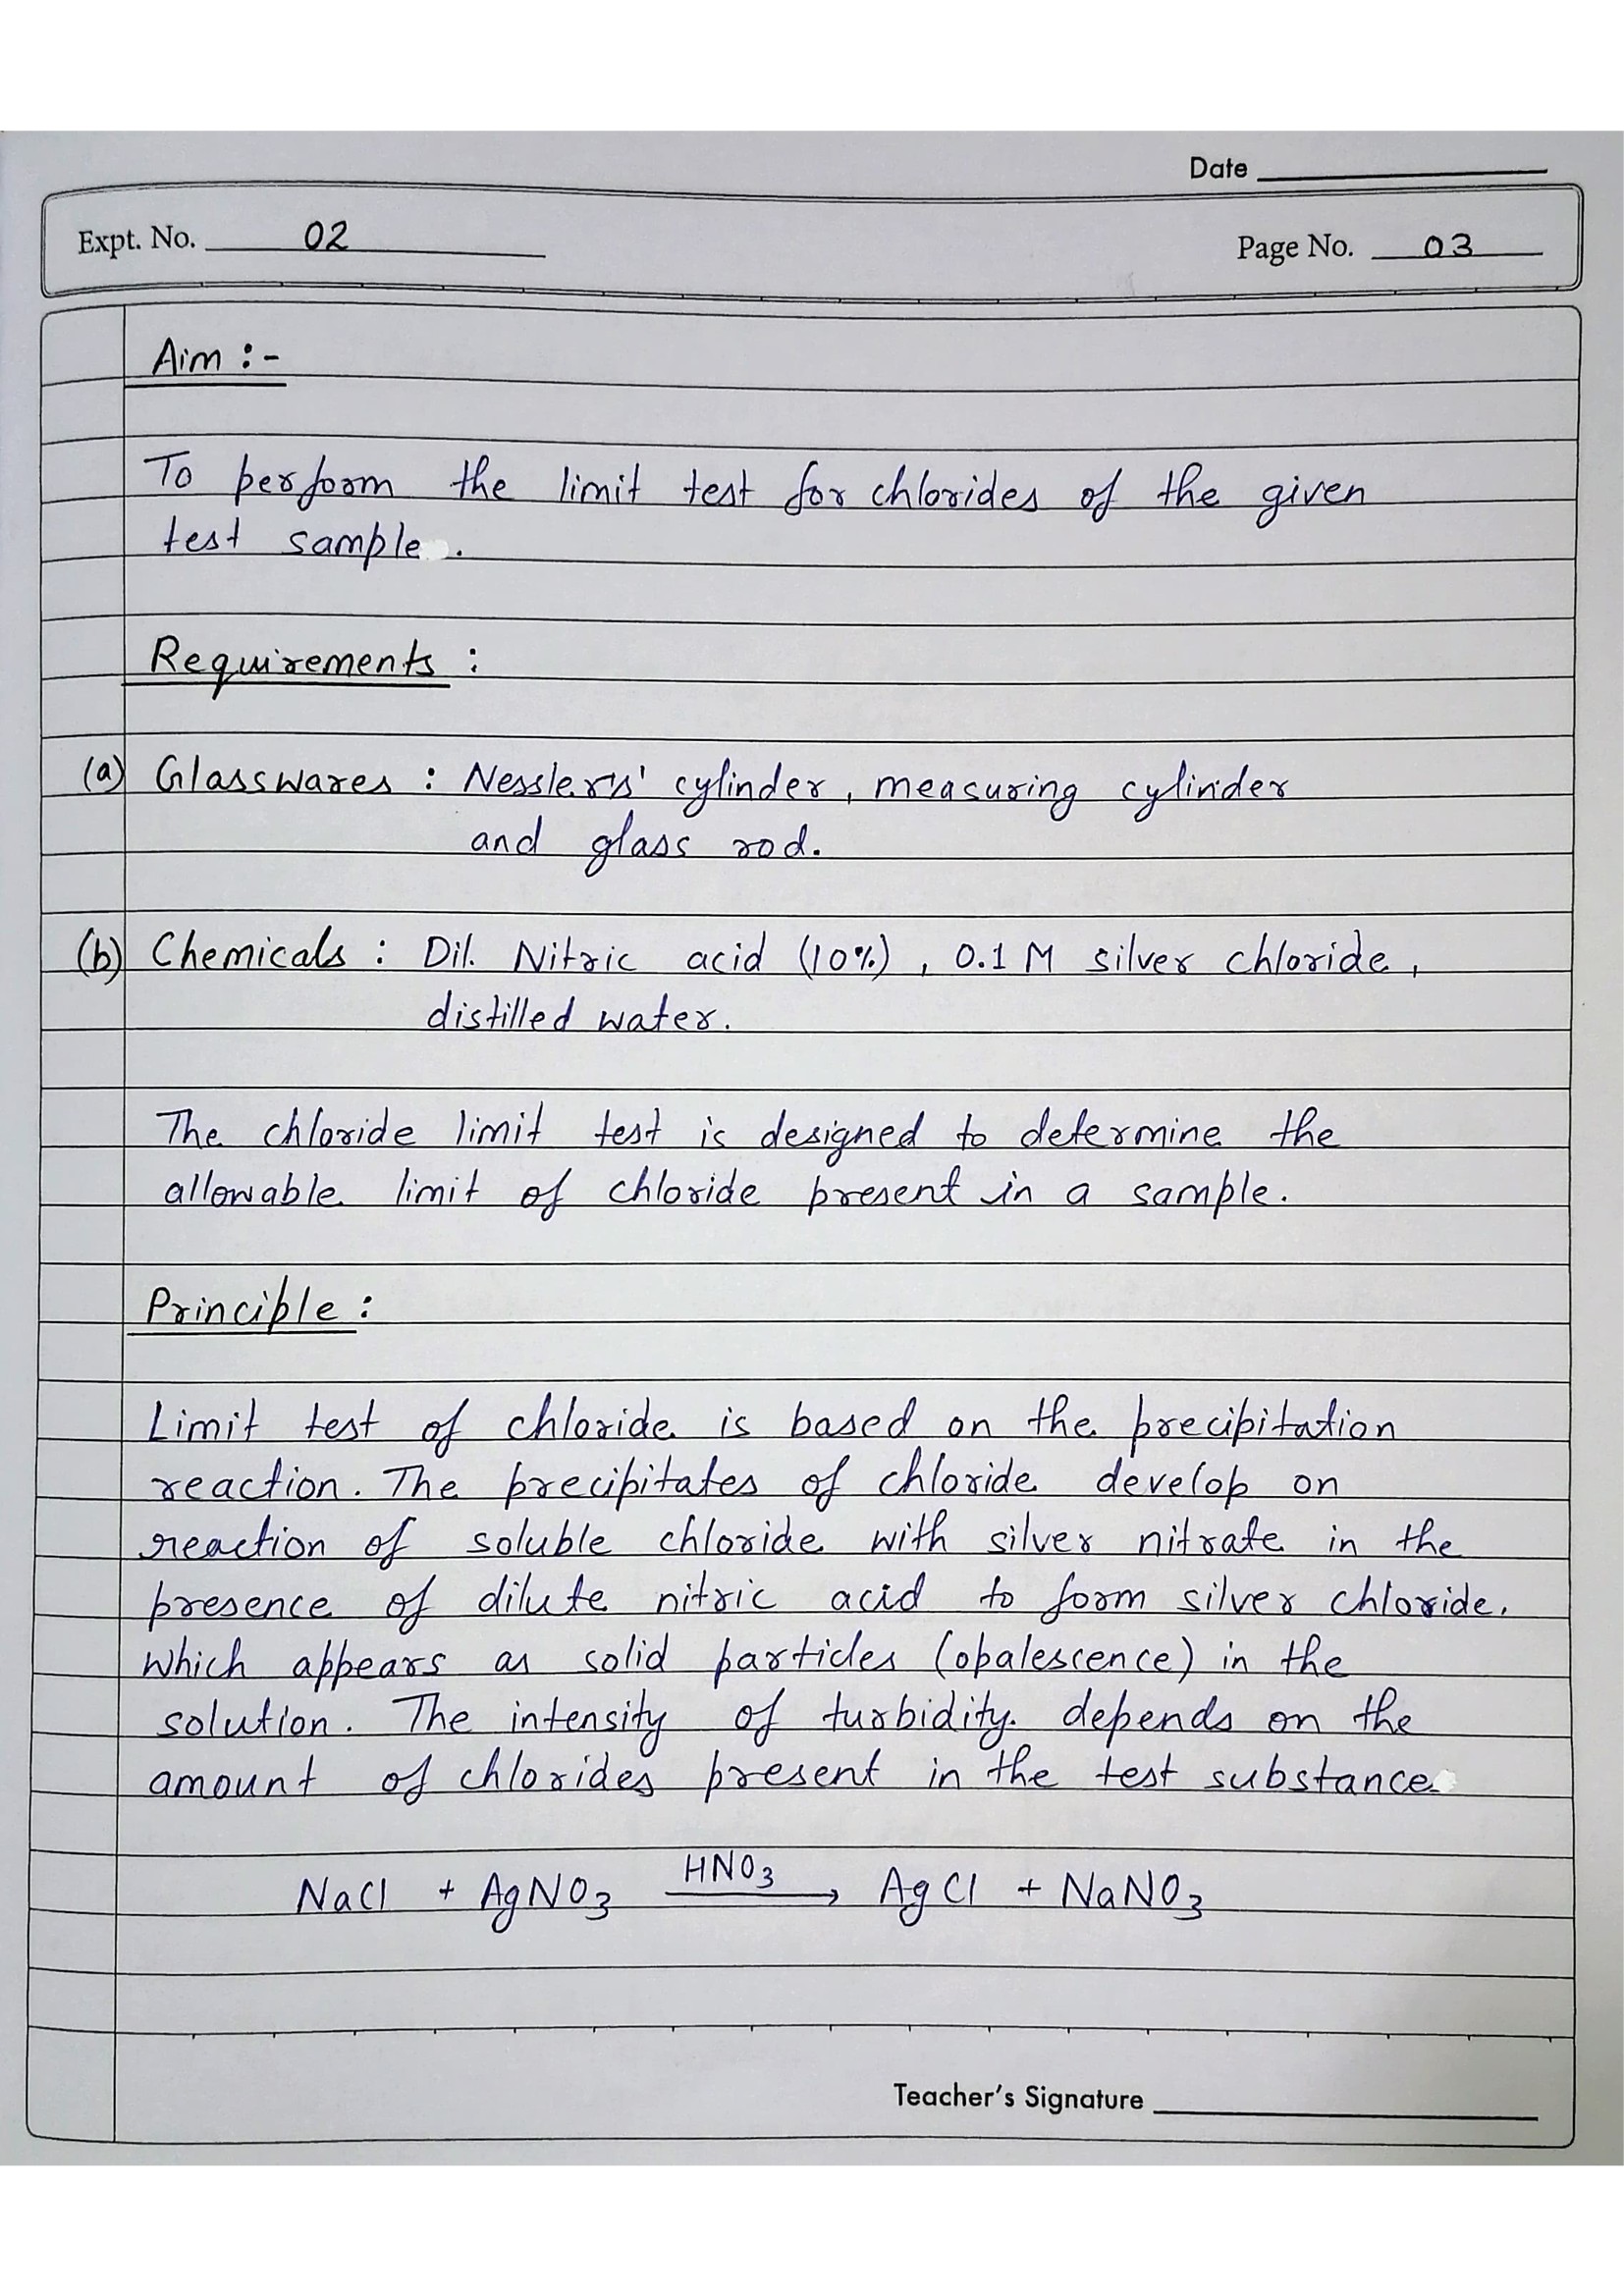 Date
Expt. No. 02
Page No. 03
Aim :-
To perform the limit test for chlorides of the given
test sample .
Requirements :
(a) Glasswares : Nesslers' cylinder, measuring cylinder
and glass rod.
(b) Chemicals : Dil. Nitric acid (10%) , 0.1 M silver chloride ,
distilled water.
The chloride limit test is designed to determine the
allowable limit of chloride present in a sample.
Principle :
Limit test of chloride is based on the precipitation
reaction. The precipitates of chloride develop on
reaction of soluble chloride with silver nitrate in the
presence of dilute nitric acid to form silver chloride.
which appears as solid particles (opalescence) in the
solution. The intensity of turbidity. depends on the
amount of chlorides present in the test substance
NaCl + AgNO₃ HNO₃ → AgCl + NaNO₃
Teacher's Signature